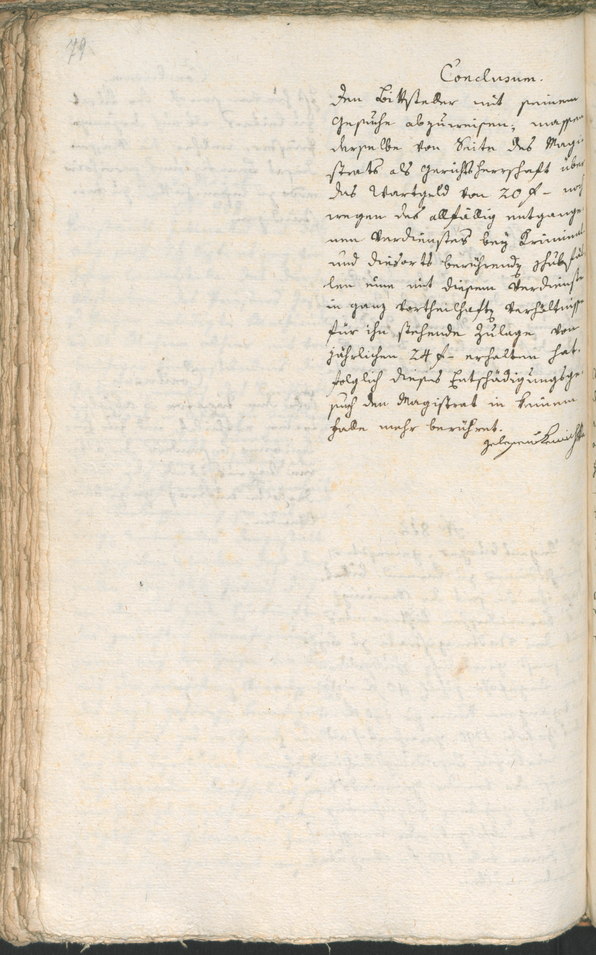 79.
Conclusum.
Den Bittsteller mit seinem
Gesuche abzuweisen; massen
derselbe von Seite des Magi
strats als Gerichtsherrschaft über
das Wartgeld von 20 f – noch
wegen des allfällig entgange
nen Verdienstes bey Kriminal
und diesorts berührend
len eine mit diesem Verdienste
in ganz vortheilhaft Verhältniss
für ihn stehende Zulage von
jährlichen 24 f – erhalten hat.
folglich dieses Entschädigungsge
such den Magistrat in keinem
Falle mehr berühret.